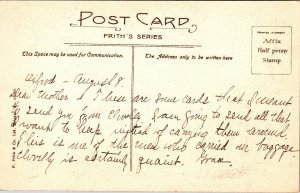 POST CARD
FRITH'S SERIES
This Space may be used for Communication.
The Address only to be written here
Affix
Half penny
Stamp.
F. Frith & Co. Ltd. Reigate
August 8.
Dear Mother - These are some cards that I meant
to send you from Clovelly. I am going to send all that
want to keep instead of carrying them around.
This is one of the ones who carried our baggage
Clovelly is certainly quaint.